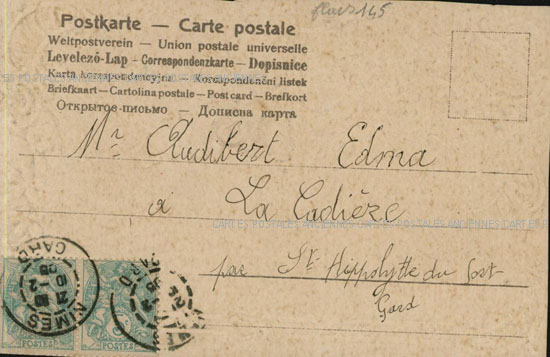 fleurs 145
Postkarte — Carte postale
Weltpostverein — Union postale universelle
Levelezó-Lap — Correspondenzkarte — Dopisnice
Karta korrespondencyjna — Korespondenční listek
Briefkaart — Cartolina postale — Post card — Brefkort
Открытое письмо — Дописна карта
CARTES POSTALES ANCIENNES
Mr Audibert Edma
a La Cadière
CARTES POSTALES ANCIENNES CARTES POSTALES ANCIENNES
par St Hippolytte du fort
Gard
NIMES
GARD
POSTES
POSTES